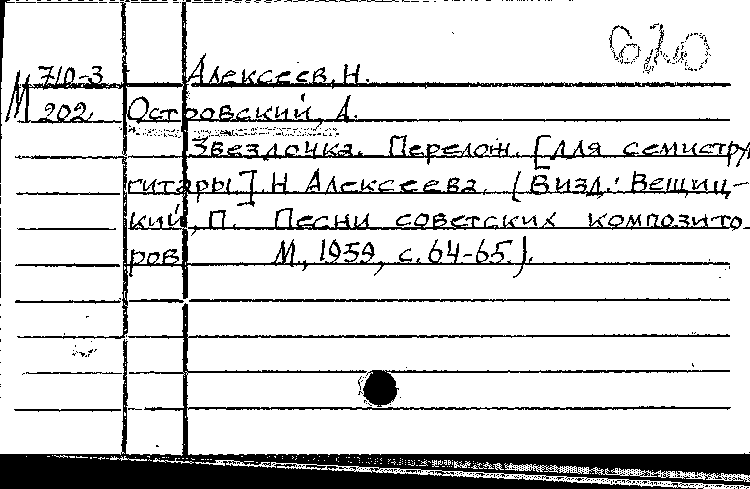 620
710-3 Алексеев, Н.
М 202 Островский, А.
Звездочка. Перелож. [для семистру
гитары] Н Алексеева. (В изд.: Вещиц-
кий, П. Песни советских композито
ров М., 1959, с. 64-65).